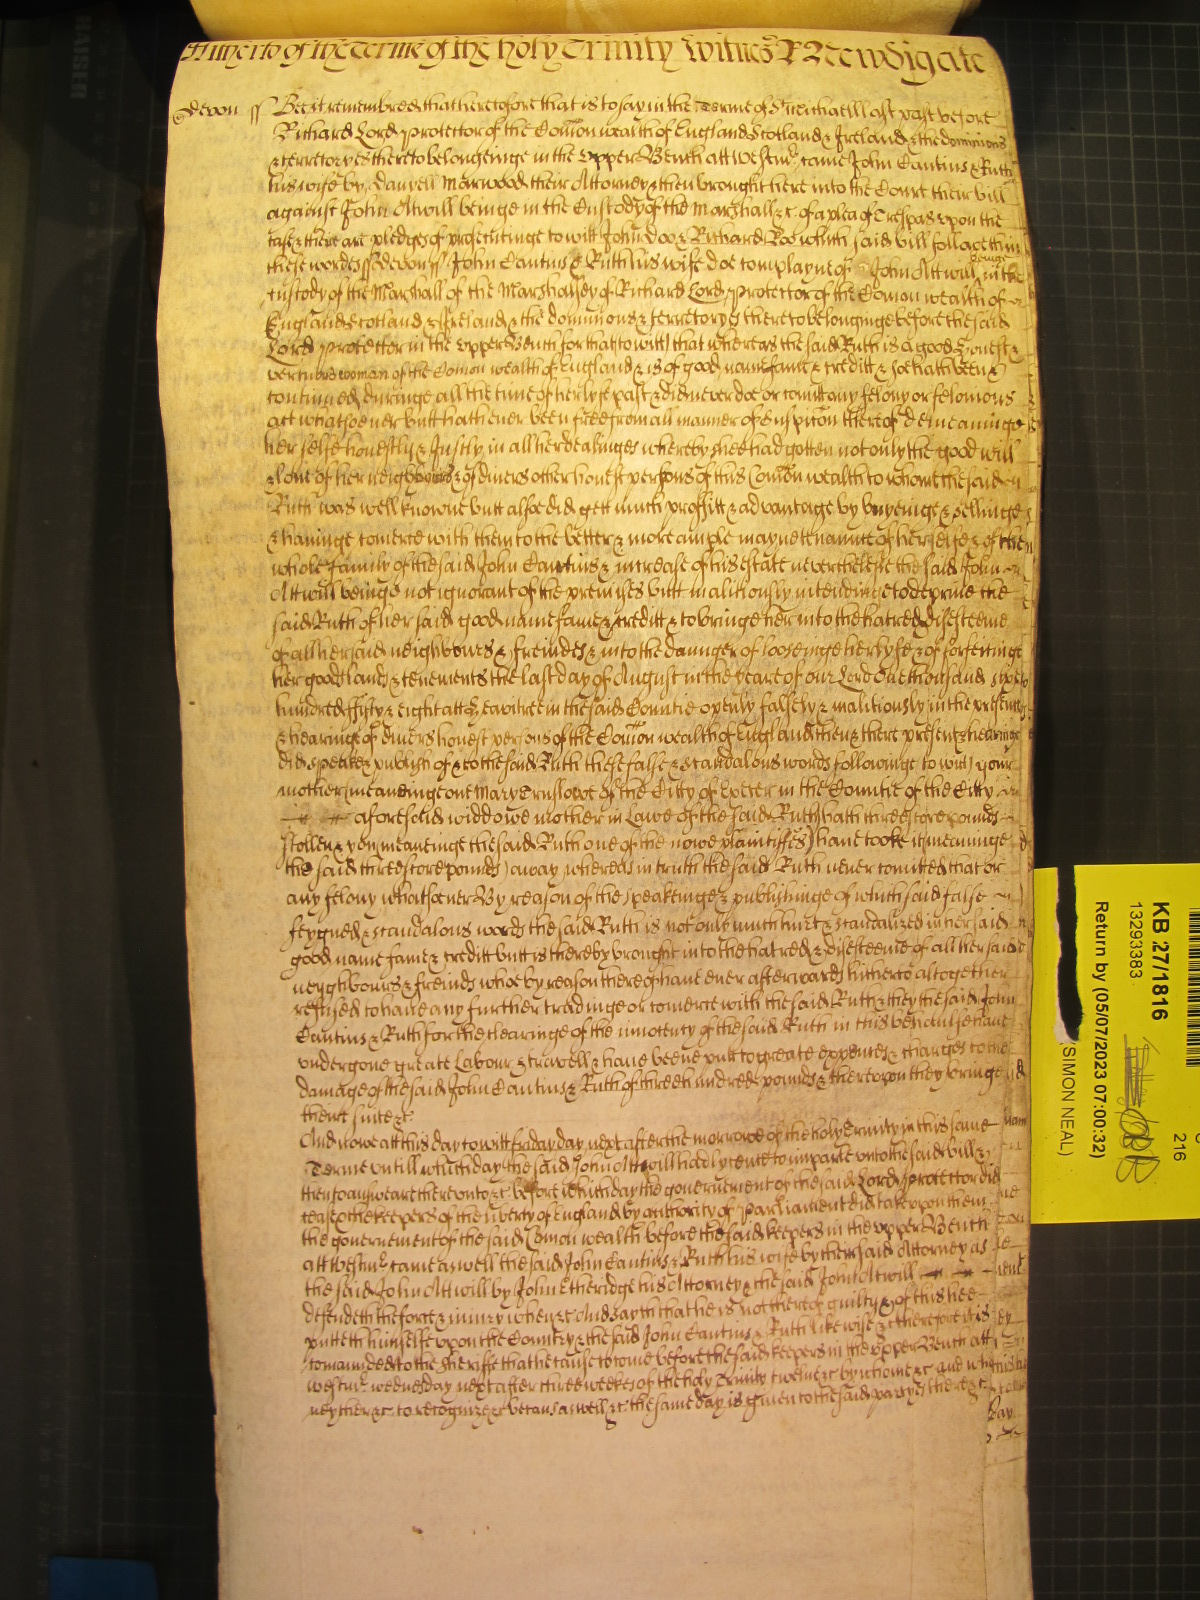 Hitherto of the Terme of the holy Trinity Witnes R Newdigate
Devon ss Bee it remembred that heretofore that is to say in the Terme of St Michaell last past before
Richard Lord Protector of the Com̄on wealth of England Scotland & Ireland & the dominions
& territoryes thereto belongeinge in the Upper Bench att Westmr came John Cantius & Ruth
his wife by Danyell Morwood their Attorney & then brought here into the Court their bill
against John Attwill beinge in the Custody of the Marshall &c of a plea of Trespas upon the
case & there are pledges of prosecutinge to witt John Doo & Richard Roo which said bill followeth in
these wordes ss Devon ss John Cantius & Ruth his wife doe complayne of John Attwill beinge in the
custody of the Marshall of the Marshalsey of Richard Lord Protector of the Com̄on wealth of
England Scotland & Ireland & the dominions & territoryes thereto belonginge before the said
Lord Protector in the Upper Bench for that to witt that whereas the said Ruth is a good honest &
vertuous woman of the Com̄on wealth of England & is of good name fame & creditt & soe hath been &
continued duringe all the time of her lyfe past & did never doe or com̄itt any felony or felonious
act whatsoever butt hath ever been free from all manner of suspic̄on thereof demeaninge
her selfe honestly & Justly in all her dealinges whereby shee had gotten not only the good will
& love of her neighbours & of divers other honest persons of this Com̄on wealth to whome the said
Ruth was well knowne butt alsoe did gett much proffitt & advantage by buyeinge & sellinge
& haveinge com̄erce with them to the better & more ample mayntenannce of her selfe & of the
whole family of the said John Cantius & increase of his estate neverthelesse the said John
Attwill beinge not ignorant of the premises butt malitiously intendinge to deprive the
said Ruth of her said good name fame & creditt & to bringe her into the hatred & disesteeme
of all her said neighbours & freindes & into the daunger of looseinge her lyfe & of forfeitinge
her goods lands & tenements the last day of August in the yeare of our Lord One thousand sixe
hundred fiftye & eight att in the said Countie openly falsely & malitiously in the presence
& hearinge of divers honest persons of the Com̄on wealth of England then & there present & hearinge
did speake & publish of & to the said Ruth these false & scandalous words followinge to witt your
mother (meaninge one Mary of the Citty of Exeter in the Countie of the Citty
aforesaid widdowe mother in Lawe of the said Ruth) hath threescore pounds
stollen & you (meaninge the said Ruth one of the nowe plaintiffes) have tooke it (meaninge
the said threescore pounds) away whereas in truth the said Ruth never com̄itted that or
any felony whatsoever By reason of the speakeinge & publishinge of which said false
feygned & scandalous words the said Ruth is not only much hurt & scandalized in her said
good name fame & creditt butt is thereby brought into the hatred & disesteeme of all her said
neyghbours & freinds whoe by reason thereof have ever afterwards hitherto altogether
refused to have any further tradinge or com̄erce with the said Ruth & they the said John
Cantius & Ruth for the clearinge of the innocency of the said Ruth in this behaulfe have
undergone greate Labour & travell & have beene putt to greate expences & charges to the
damage of the said John Cantius & Ruth of three hundred pounds & thereupon they bringe
their suite &c
And nowe att this day to witt fryday day next after the morrowe of the holy Trinity in this same
Terme untill which day the said John Attwill had lycence to imparle unto the said bill &
then to answeare thereunto &c before which day the government of the said Lord Protector did
cease & the keepers of the liberty of England by authority of Parliament did take upon them
the governement of the said Com̄on wealth before the said keepers in the Upper Bench
att Westmr came aswell the said John Cantius & Ruth his wife by their said Attorney as
the said John Attwill by John Etheridge his Attorney & the said John Attwill
defendeth the force & iniury when &c And sayth that he is not thereof guilty & of this hee
putteth himselfe upon the Country & the said John Cantius & Ruth likewise &c therefore it is
com̄aunded to the sheriffe that he cause to come before the said keepers in the Upper Bench att
Westmr wednesday next after three weekes of the holy Trinity twelve &c by whome &c and who
neyther &c to recognize &c because aswell &c the same day is given to the said partyes there &c
KB 27/1816
13293383
Return by (05/07/2023 07:00:32)
(SIMON NEAL)
216